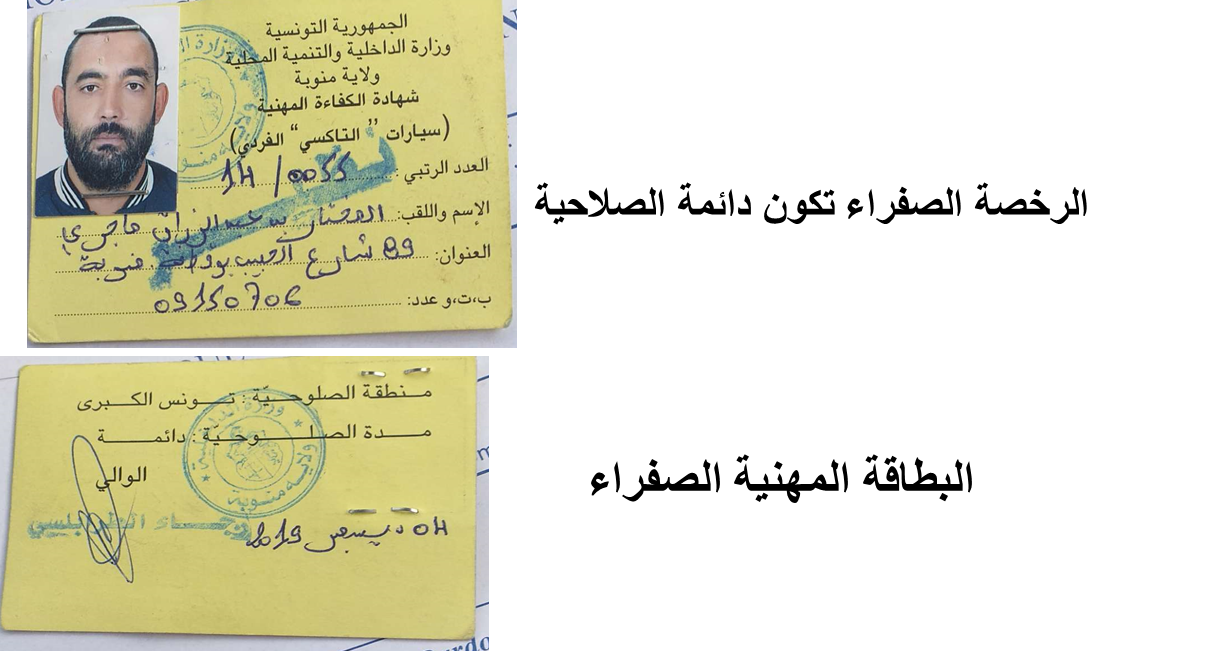 الجمهورية التونسية
وزارة الداخلية والتنمية المحلية
ولاية منوبة
شهادة الكفاءة المهنية
(سيارات "التاكسي" الفردي)
العدد الرتبي : 14/0055
الإسم واللقب: المختار بن عبد الرزاق هاجري
العنوان: 89 شارع الحبيب بورقيبة منوبة
ب،ت،و عدد: 09150706
الرخصة الصفراء تكون دائمة الصلاحية
منطقة الصلوحيّة : تونس الكبرى
مدة الصلوحيّة : دائمة
الوالي
رجاء الطرابلسي
04 ديسمبر 2019
وزارة الداخلية
ولاية منوبة
البطاقة المهنية الصفراء